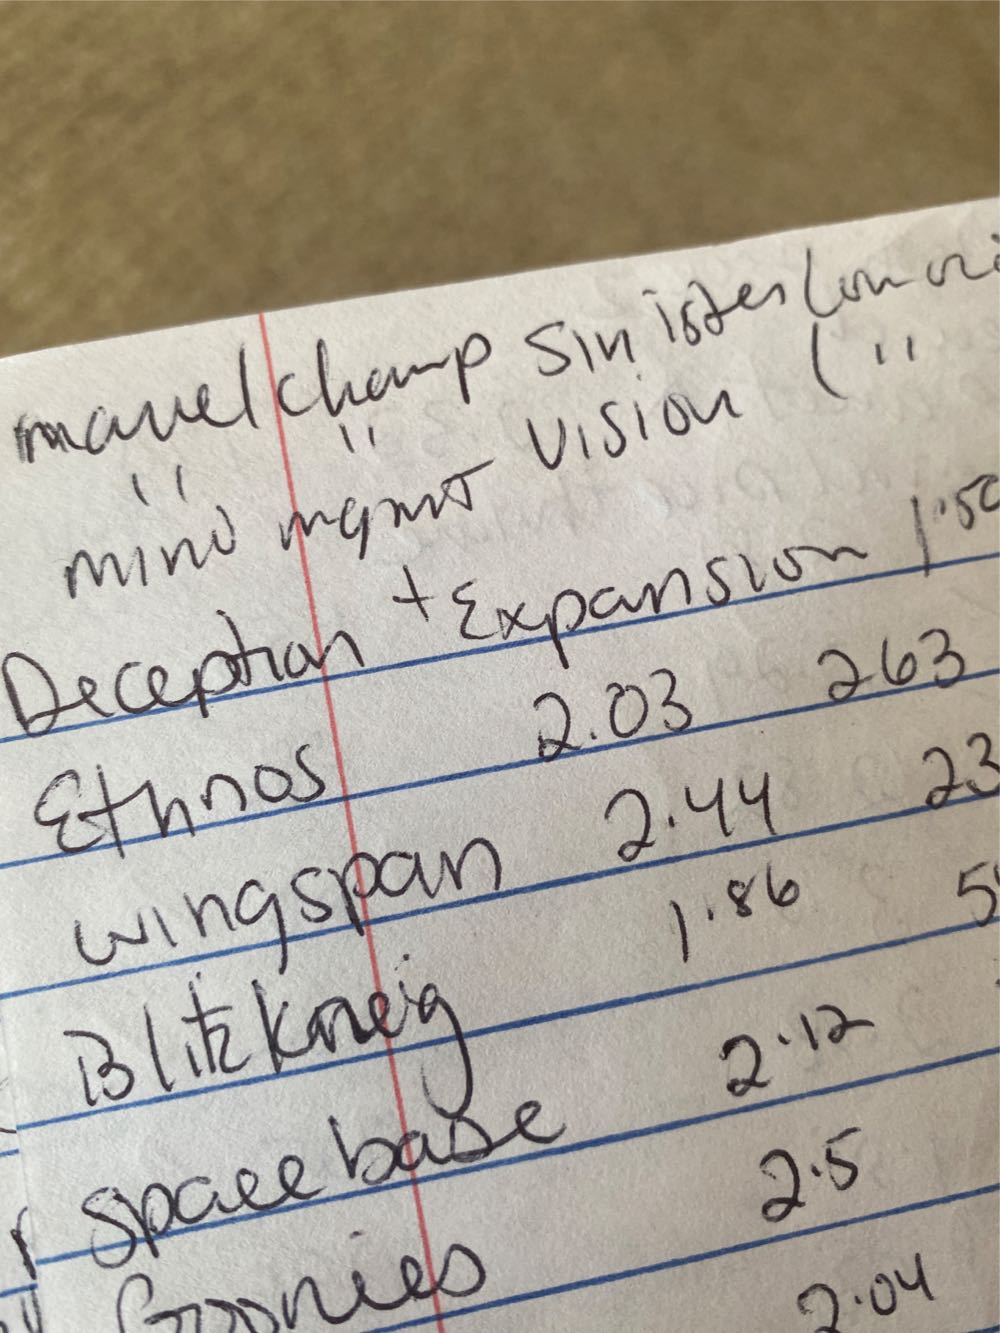 marvel champ sinister (on ori
" " vision ( "
mind mgmt
Deception + Expansion 1.50
Ethnos 2.03 263
wingspan 2.44 23
Blitzkreig 1.86
spacebase 2.12
Goonies 2.5
2.04